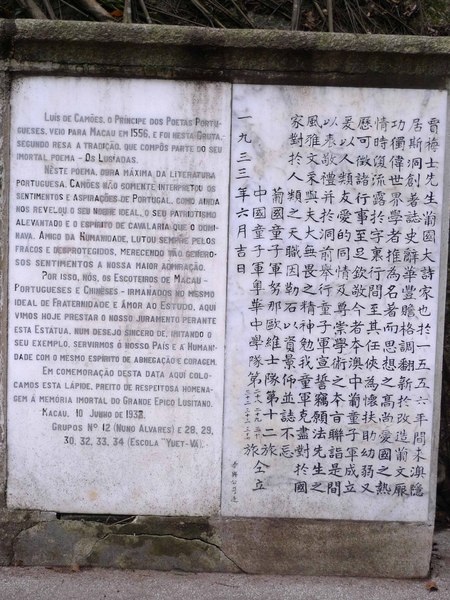 LUÍS DE CAMÕES, O PRÍNCIPE DOS POETAS PORTU-
GUESES, VEIO PARA MACAU EM 1556, E FOI NESTA GRUTA,
SEGUNDO RESA A TRADIÇÃO, QUE COMPÔS PARTE DO SEU
IMORTAL POEMA - OS LUSÍADAS.
NESTE POEMA, OBRA MÁXIMA DA LITERATURA
PORTUGUESA, CAMÕES NÃO SOMENTE INTERPRETOU OS
SENTIMENTOS E ASPIRAÇÕES DE PORTUGAL, COMO AINDA
NOS REVELOU O SEU NOBRE IDEAL, O SEU PATRIOTISMO
ALEVANTADO E O ESPÍRITO DE CAVALARIA QUE O DOMI-
NAVA. AMIGO DA HUMANIDADE, LUTOU SEMPRE PELOS
FRACOS E DESPROTEGIDOS, MERECENDO TÃO GENERO-
SOS SENTIMENTOS A NOSSA MAIOR ADMIRAÇÃO.
POR ISSO, NÓS, OS ESCOTEIROS DE MACAU -
PORTUGUESES E CHINESES - IRMANADOS NO MESMO
IDEAL DE FRATERNIDADE E AMOR AO ESTUDO, AQUI
VIMOS HOJE PRESTAR O NOSSO JURAMENTO PERANTE
ESTA ESTATUA, NUM DESEJO SINCERO DE, IMITANDO O
SEU EXEMPLO, SERVIRMOS O NOSSO PAÍS E A HUMANI-
DADE COM O MESMO ESPÍRITO DE ABNEGAÇÃO E CORAGEM.
EM COMEMORAÇÃO DESTA DATA AQUI COLO-
CAMOS ESTA LÁPIDE, PREITO DE RESPEITOSA HOMENA-
GEM À MEMÓRIA IMORTAL DO GRANDE ÉPICO LUSITANO.
MACAU, 10 JUNHO DE 1933.
GRUPOS Nº 12 (NUNO ALVARES) E 28, 29,
30, 32, 33, 34 (ESCOLA "YUET-VA").
賈梅士先生葡國大詩家也於一五五六年間來澳隱
居斯洞創著誌史辭華豐贍格調翻新於改造葡文厥
功獨偉世界學者推為名著而思想之高尚愛國之熱
情時復流露於字裏行間至其任俠為懷扶助幼弱又
歷可徵諸行事足矣欽敬澳中葡童子軍成立
爰以人類友愛的同情及尊崇學術之本旨聯詣是間
以奏敬禮並於洞前舉行童軍宣誓竊願法先生之
風雅文采與夫大無畏之精神勉我童軍克盡對於國
家對於人類之天職因勒石以資景佈並誌不忘
葡國童子軍努那歐維士第十二旅
中國童子軍粵華中學隊第旅仝立
一九三三年六月吉日